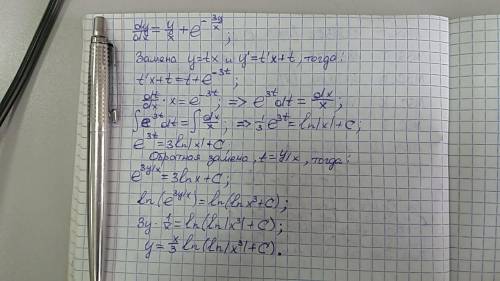 dy/dx = y/x + e^(-3y/x);
Замена y=tx и y'=t'x+t, тогда:
t'x+t=t+e^(-3t);
dt/dx · x = e^(-3t); => e^(3t)dt = dx/x;
∫e^(3t)dt = ∫dx/x; => 1/3 e^(3t) = ln|x|+C;
e^(3t)=3ln|x|+C
Обратная замена, t=y/x, тогда:
e^(3y/x)=3lnx+C;
ln(e^(3y/x))=ln(lnx³+C);
3y·1/x=ln(ln|x³|+C);
y=x/3 ln(ln|x³|+C).